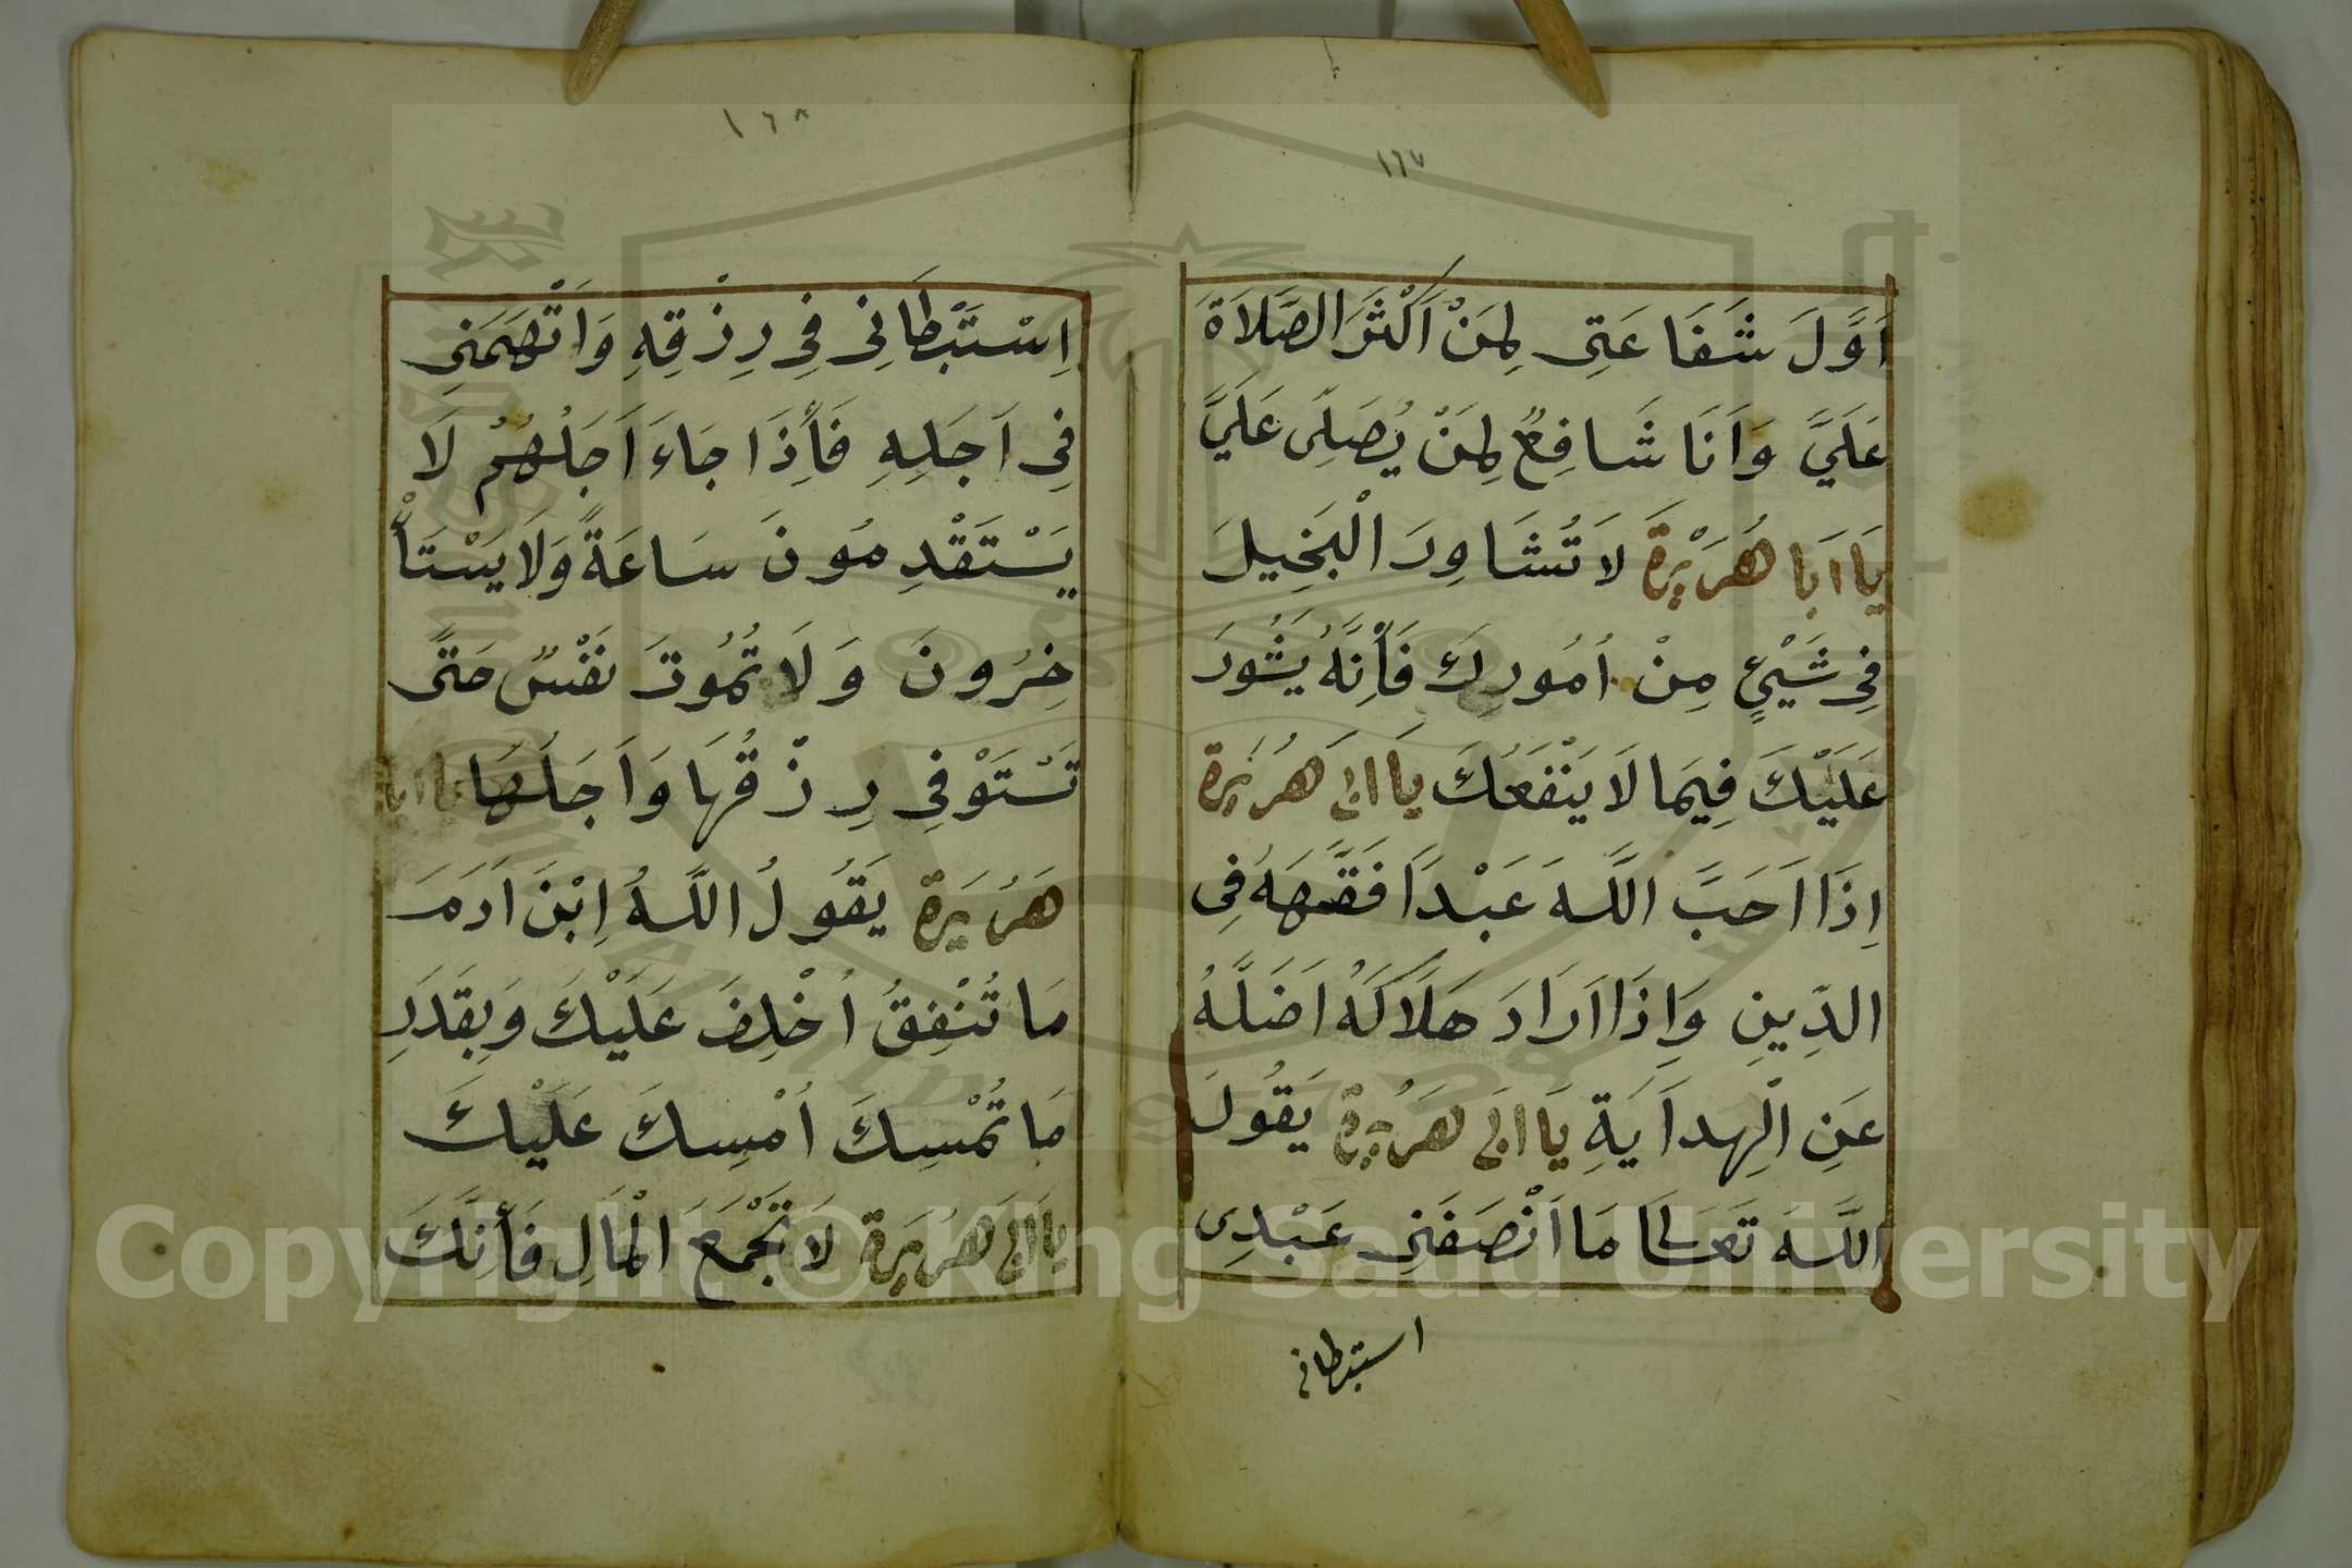 ١٦٧
اَوَّلَ شَفَاعَتِى لِمَنْ اَكْثَرَ الصَّلَاةَ
عَلَيَّ وَاَنَا شَافِعٌ لِمَنْ يُصَلِّى عَلَيَّ
يَا اَبَا هُرَيْرَةَ لَا تُشَاوِرَ الْبَخِيلَ
فِى شَيْئٍ مِنْ اُمُورِكَ فَأِنَّهُ يَشُورَ
عَلَيْكَ فِيمَا لَا يَنْفَعُكَ يَا ابى هُرَيرة
اِذَا اَحَبَّ اللَّهَ عَبْداً فَقَّهَهُ فِى
الدِّينِ وَاِذَا اَرَادَ هَلَاكَهُ اَضَلَّهُ
عَنِ الْهِدَايَةِ يَا ابى هُرَيرة يَقُولُ
اللَّهَ تَعَالَى مَا اَنْصَفَنِى عَبْدِى
استبطانى
١٦٨
اِسْتَبْطَانِى فِى رِزْقِهِ وَاتْهَمَنِى
فِى اَجَلِهِ فَأِذَا جَاءَ اَجَلُهُمْ لَا
يَسْتَقْدِمُونَ سَاعَةً وَلَا يَسْتَأْ
خِرُونَ وَلَا تَمُوتَ نَفْسٌ حَتَّى
تَسْتَوْفِى رِزْقُهَا وَاَجَلُهَا يا ابا
هُرَيرة يَقُولُ اللَّهُ اِبْنَ اَدَمَ
مَا تُنْفِقُ اُخْلِفَ عَلَيْكَ وَبِقَدَرِ
مَا تُمْسِكَ اُمْسِكَ عَلَيْكَ
يَا ابى هُرَيرة لَا تَجْمَعَ الْمَالِ فَأِنَّكَ
Copyright © King Saud University